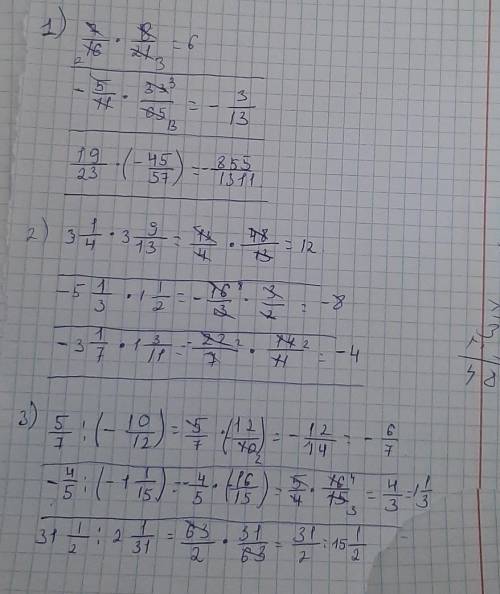 1) 7/16 · 8/21 = 6
2 3
- 5/11 · 33/65 = - 3/13
3 13
19/23 · (- 45/57) = - 855/1311
2) 3 1/4 · 3 9/13 = 13/4 · 48/13 = 12
-5 1/3 · 1 1/2 = - 16/3 · 3/2 = -8
8
-3 1/7 · 1 3/11 = - 22/7 · 14/11 = -4
2 2
3) 5/7 : (- 10/12) = 5/7 · (- 12/10) = - 12/14 = - 6/7
2
- 4/5 : (-1 1/15) = - 4/5 : (- 16/15) = 5/4 · 16/15 = 4/3 = 1 1/3
4 3
31 1/2 : 2 1/31 = 63/2 · 31/63 = 31/2 = 15 1/2